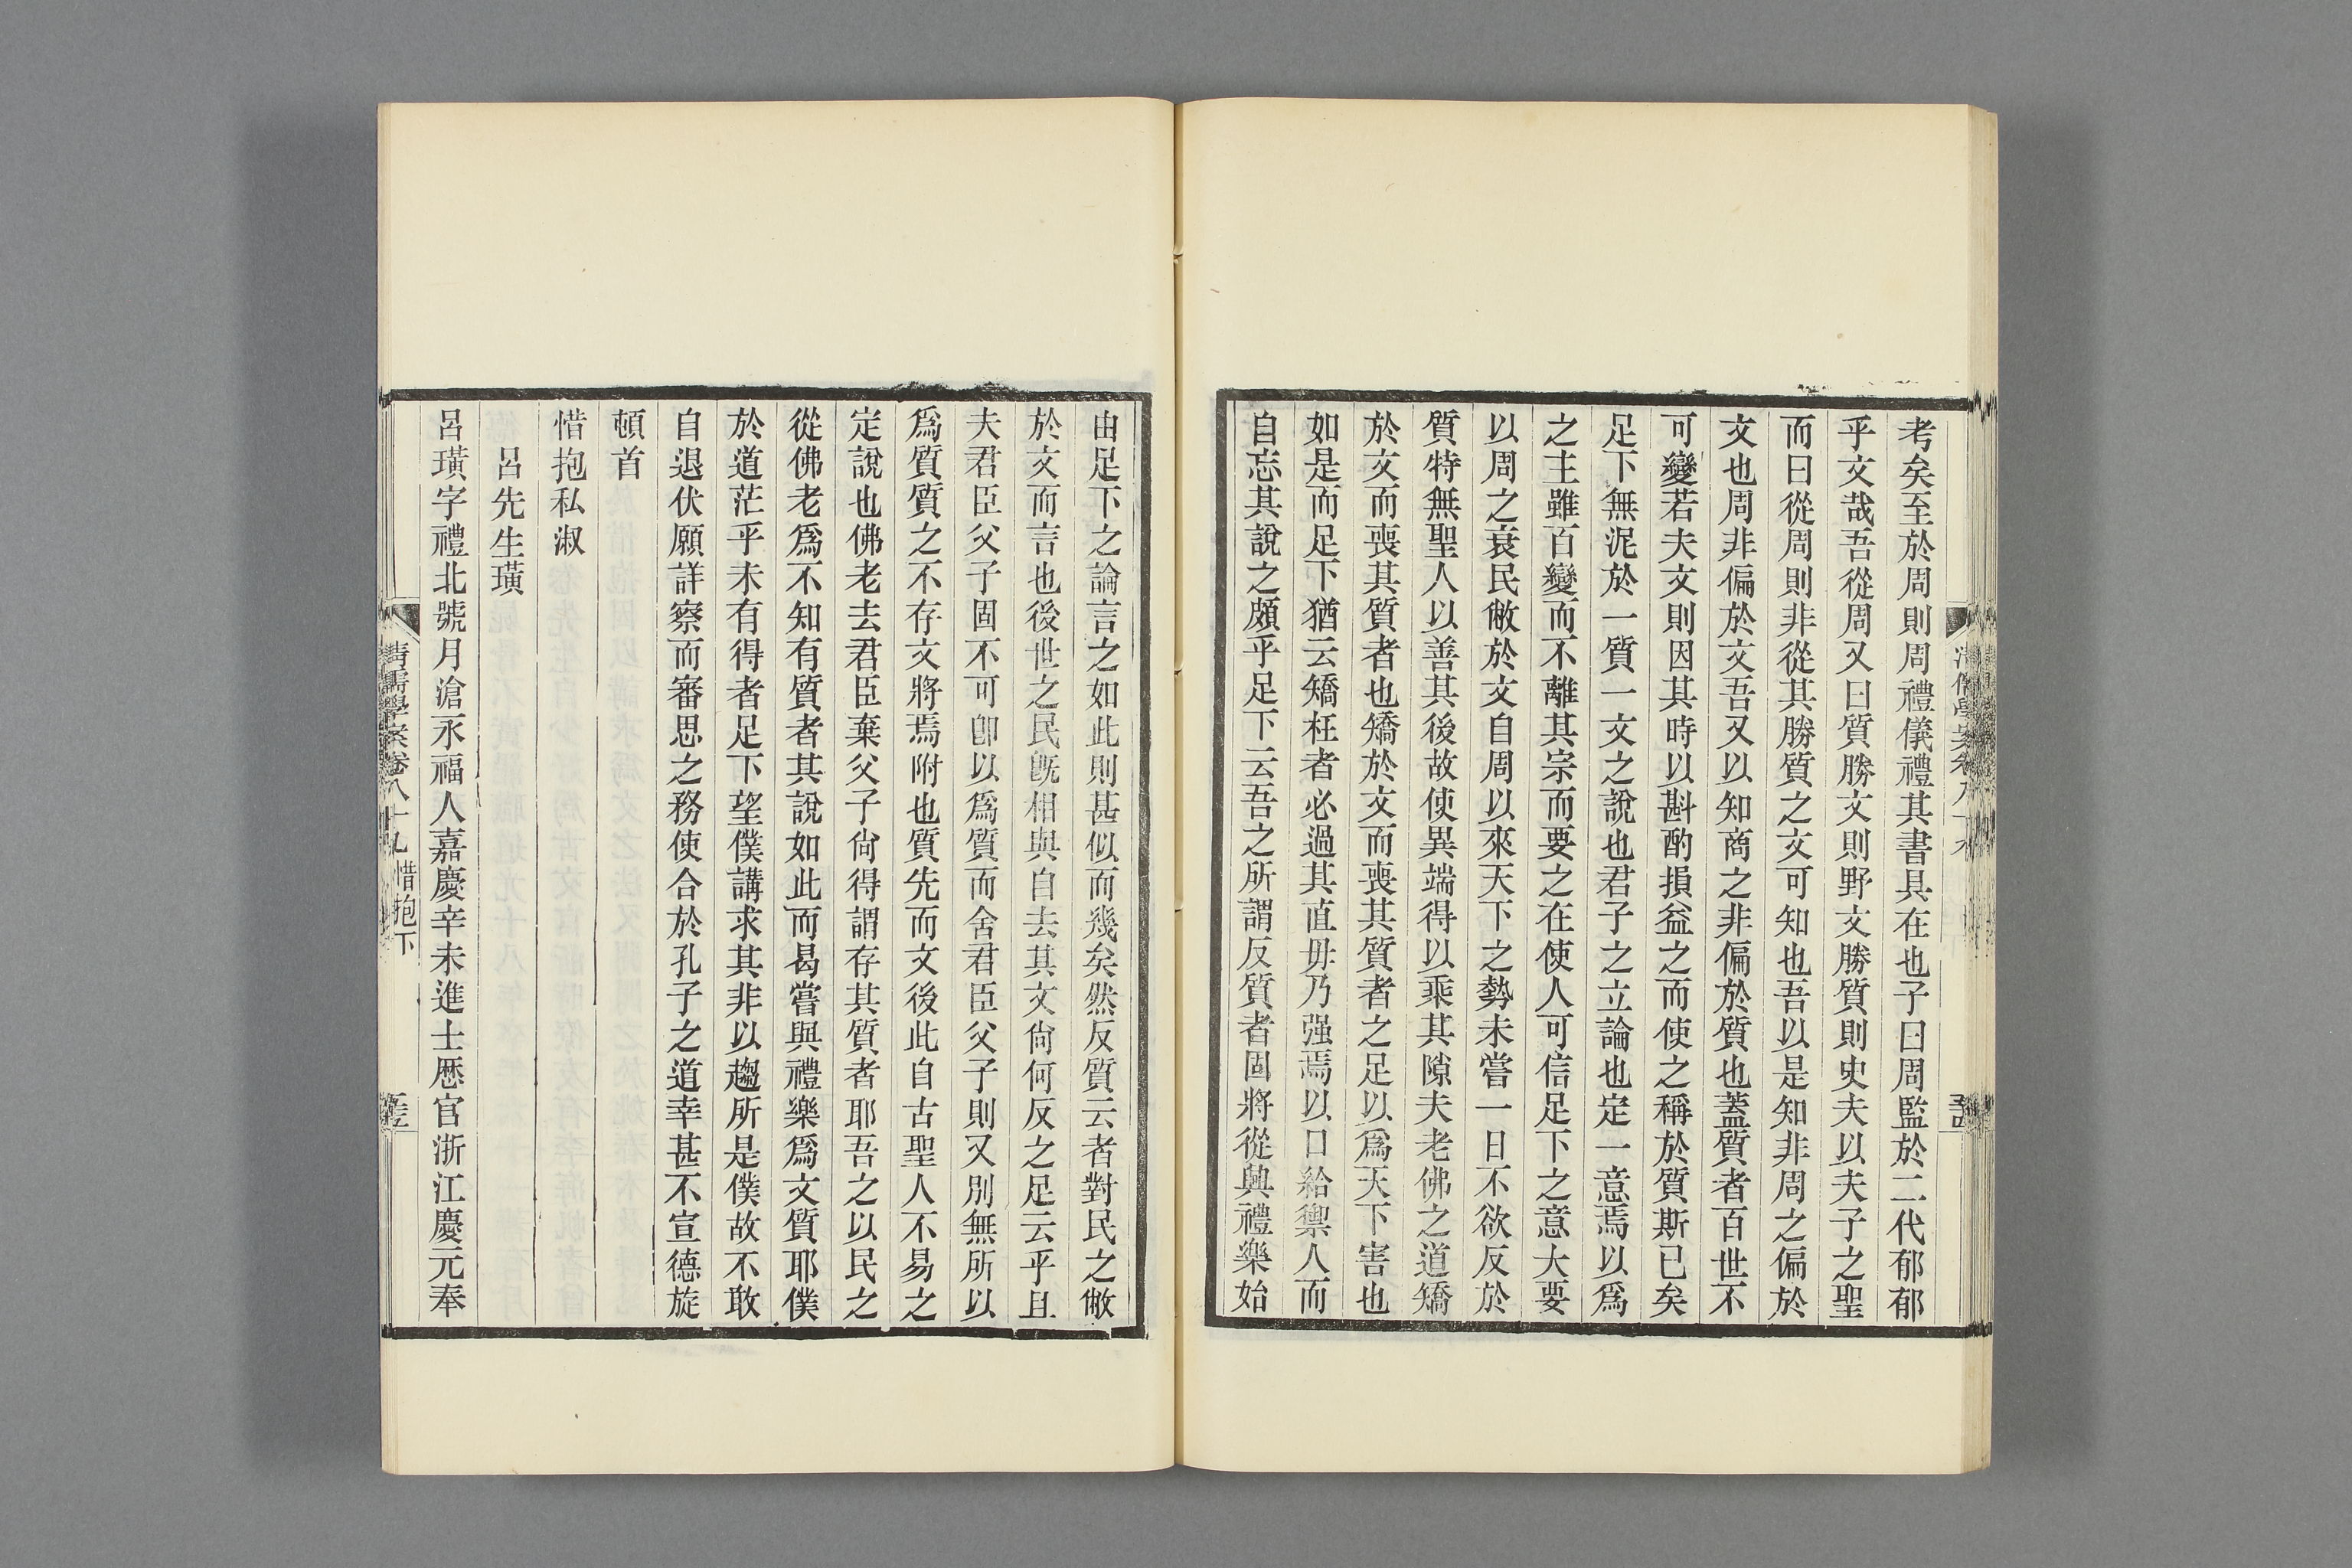 考矣至於周則周禮儀禮其書具在也子曰周監於二代郁郁
乎文哉吾從周又曰質勝文則野文勝質則史夫以夫子之聖
而曰從周則非從其勝質之文可知也吾以是知非周之偏於
文也周非偏於文吾又以知商之非偏於質也蓋質者百世不
可變若夫文則因其時以斟酌損益之而使之稱於質斯已矣
足下無泥於一質一文之說也君子之立論也定一意焉以爲
之主雖百變而不離其宗而要之在使人可信足下之意大要
以周之衰民敝於文自周以來天下之勢未嘗一日不欲反於
質特無聖人以善其後故使異端得以乘其隙夫老佛之道矯
於文而喪其質者也矯於文而喪其質者之足以爲天下害也
如是而足下猶云矯枉者必過其直毋乃强焉以口給禦人而
自忘其說之頗乎足下云吾之所謂反質者固將從興禮樂始
由足下之論言之如此則甚似而幾矣然反質云者對民之敝
於文而言也後世之民旣相與自去其文尙何反之足云乎且
夫君臣父子固不可卽以爲質而舍君臣父子則又別無所以
爲質質之不存文將焉附也質先而文後此自古聖人不易之
定說也佛老去君臣棄父子尙得謂存其質者耶吾之以民之
從佛老爲不知有質者其說如此而曷嘗與禮樂爲文質耶僕
於道茫乎未有得者足下望僕講求其非以趨所是僕故不敢
自退伏願詳察而審思之務使合於孔子之道幸甚不宣德旋
頓首
惜抱私淑
呂先生璜
呂璜字禮北號月滄永福人嘉慶辛未進士歷官浙江慶元奉
清儒學案卷八十九 惜抱下